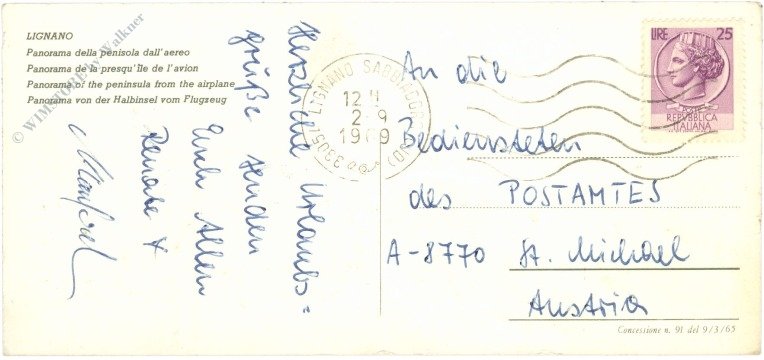 LIGNANO
Panorama della penisola dall'aereo
Panorama de la presqu'île de l'avion
Panorama of the peninsula from the airplane
Panorama von der Halbinsel vom Flugzeug
© WIMSTORE by Walkner
Herzliche Urlaubs=
grüße senden
Euch Allen
Renate +
Manfred
33054 LIGNANO SABBIADORO (UD)
12
2-9
19 9
LIRE 25
POSTE
REPVBBLICA
ITALIANA
An die
Bediensteten
des POSTAMTES
A-8770 St. Michael
Austria
Concessione n. 91 del 9/3/65